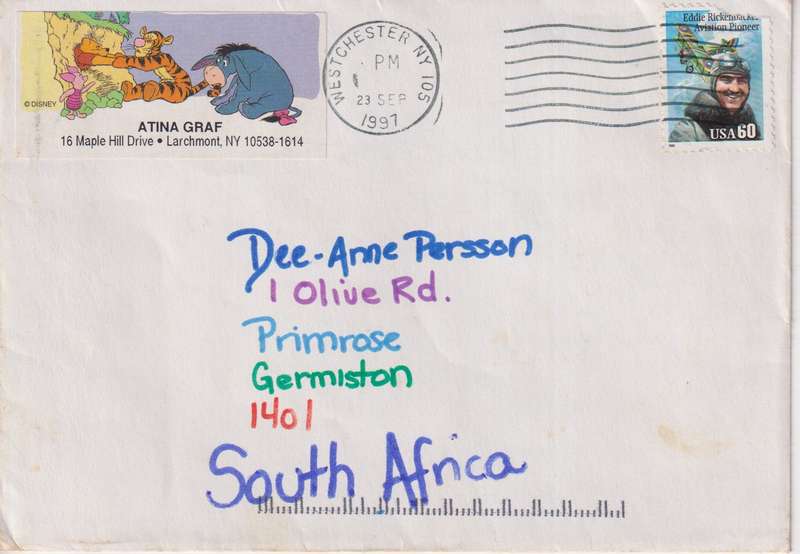 ©DISNEY
ATINA GRAF
16 Maple Hill Drive • Larchmont, NY 10538-1614
WESTCHESTER NY 105
PM
23 SEP
1997
Eddie Rickenbacker
Aviation Pioneer
USA 60
Dee-Anne Persson
1 Olive Rd.
Primrose
Germiston
1401
South Africa